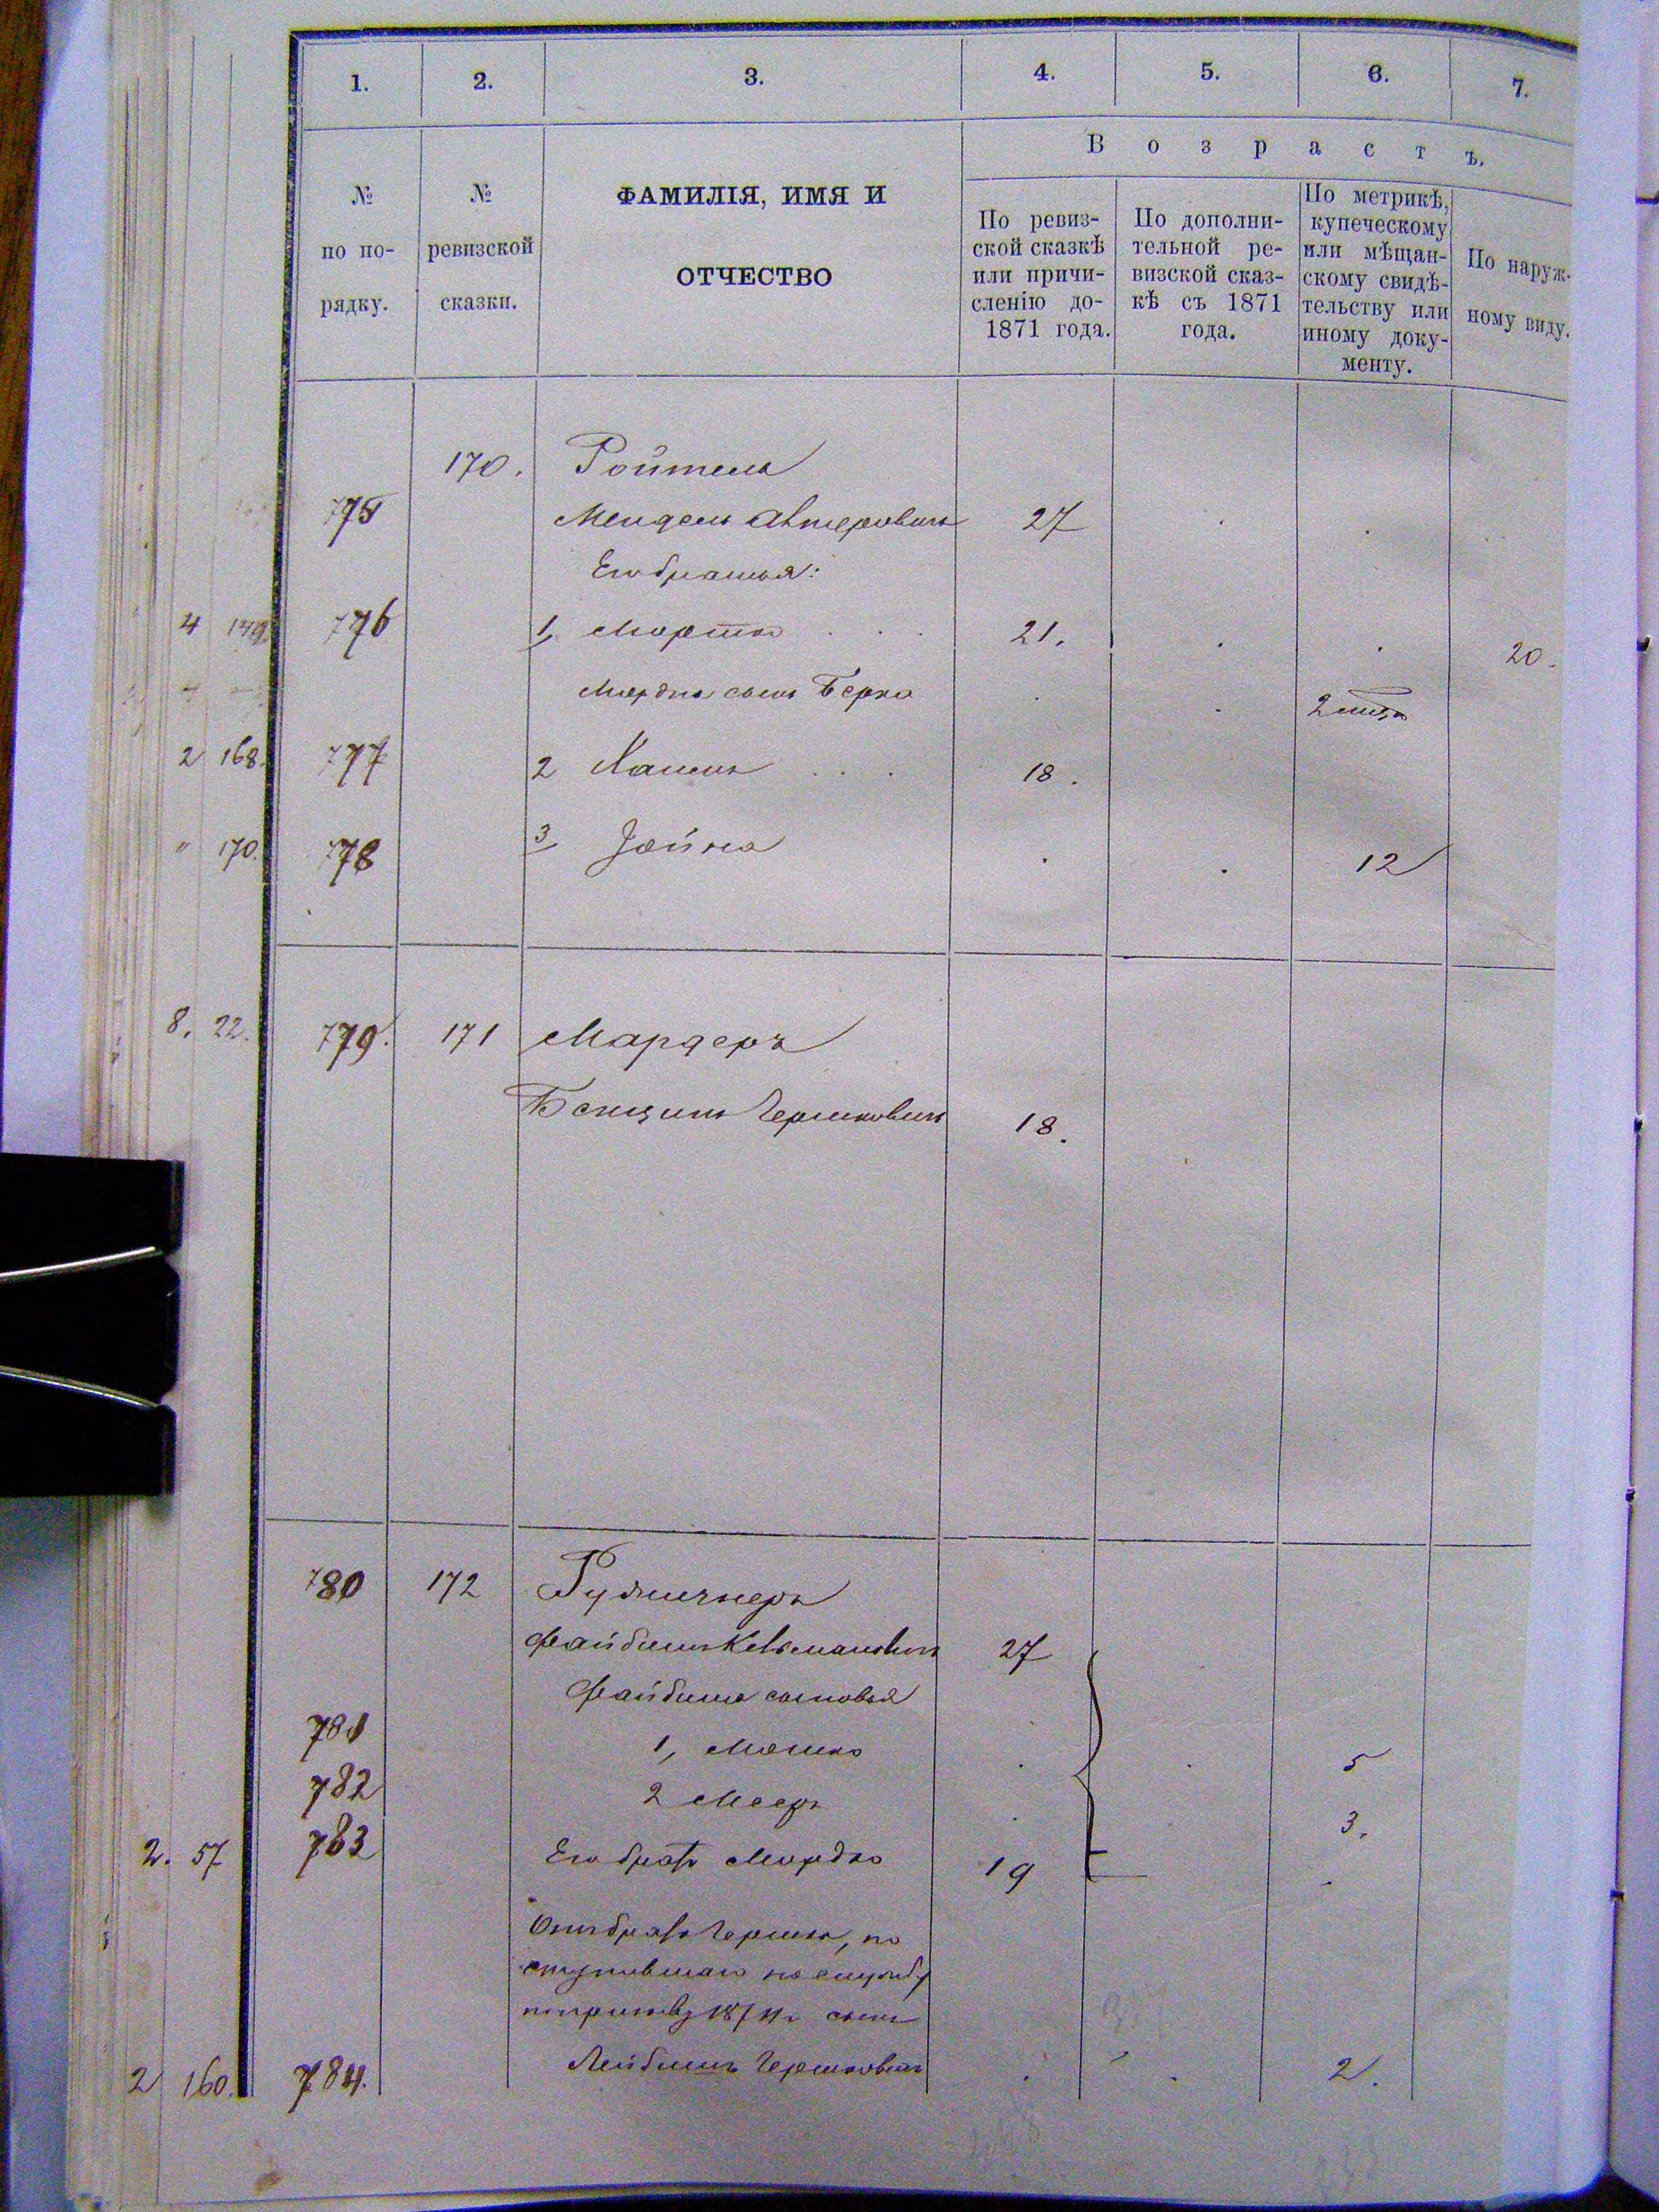 1. 2. 3. 4. 5. 6. 7.
№ по по-рядку.
№ ревизской сказки.
ФАМИЛІЯ, ИМЯ И
ОТЧЕСТВО
Возрастъ.
По ревиз-
ской сказкѣ
или причи-
сленію до-
1871 года.
По дополни-
тельной ре-
визской сказ-
кѣ съ 1871
года.
По метрикѣ,
купеческому
или мѣщан-
скому свидѣ-
тельству или
иному доку-
менту.
По наруж-
ному виду.
170. Ройтель
775 Мендель Авмеровичъ 27
Его братья:
4 776 1, 21. 20.
Мордки сынъ Берко 2
2 168. 777 2 Хаимъ 18.
" 170. 778 3 Іойна 12
8. 22. 779. 171 Мардеръ
Бенціинъ Гершковичъ 18.
780 172
Файбишъ Кельмановичъ 27
Файбиша сыновья
781 1, Мошко 5
782 2 Мееръ 3.
2. 57 783 Его братъ Мордко 19
брата Гершка, по
ступившаго на службу
по призыву сынъ
2 160. 784. Лейбишъ Гершковичъ 2.